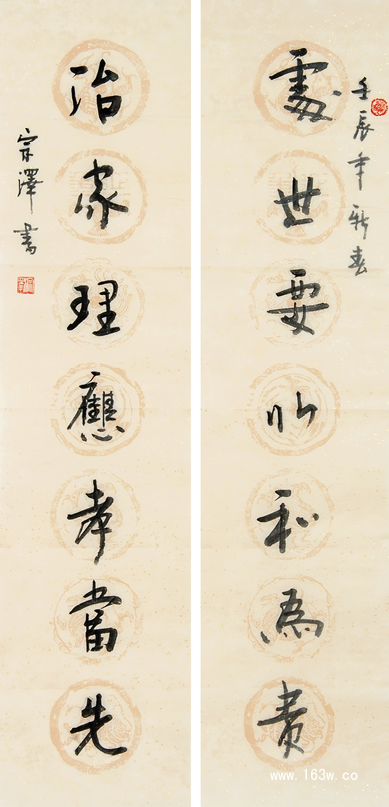 壬辰年新春
處世要以和為貴
治家理應孝當先
宗澤書
www.163w.co